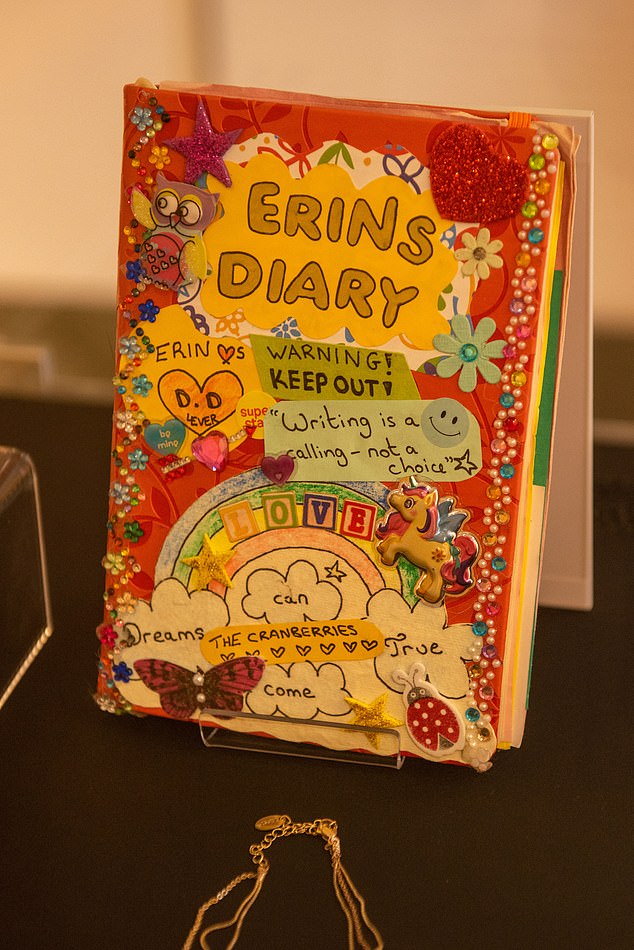 ERINS
DIARY
ERIN ♥s
D.D
4EVER
WARNING!
KEEP OUT!
be
mine
super
star
"Writing is a
calling - not a
choice"
LOVE
can
Dreams
THE CRANBERRIES
True
come